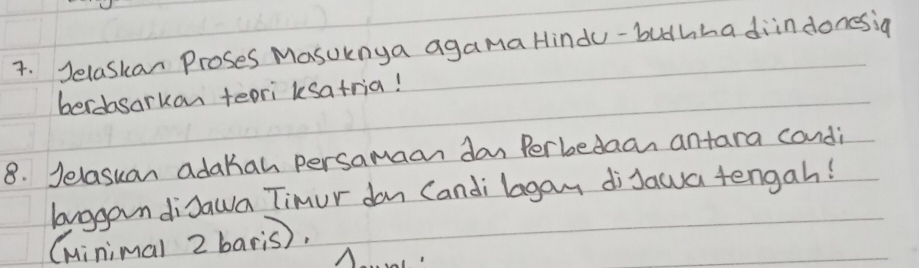 7. Jelaskan Proses Masuknya agama Hindu - budhha diindonesia
berdasarkan teori ksatria!
8. Jelaskan adakah persamaan dan Perbedaan antara candi
langgam diJawa Timur dan Candi lagam di Jawa tengah!
(Minimal 2 baris).